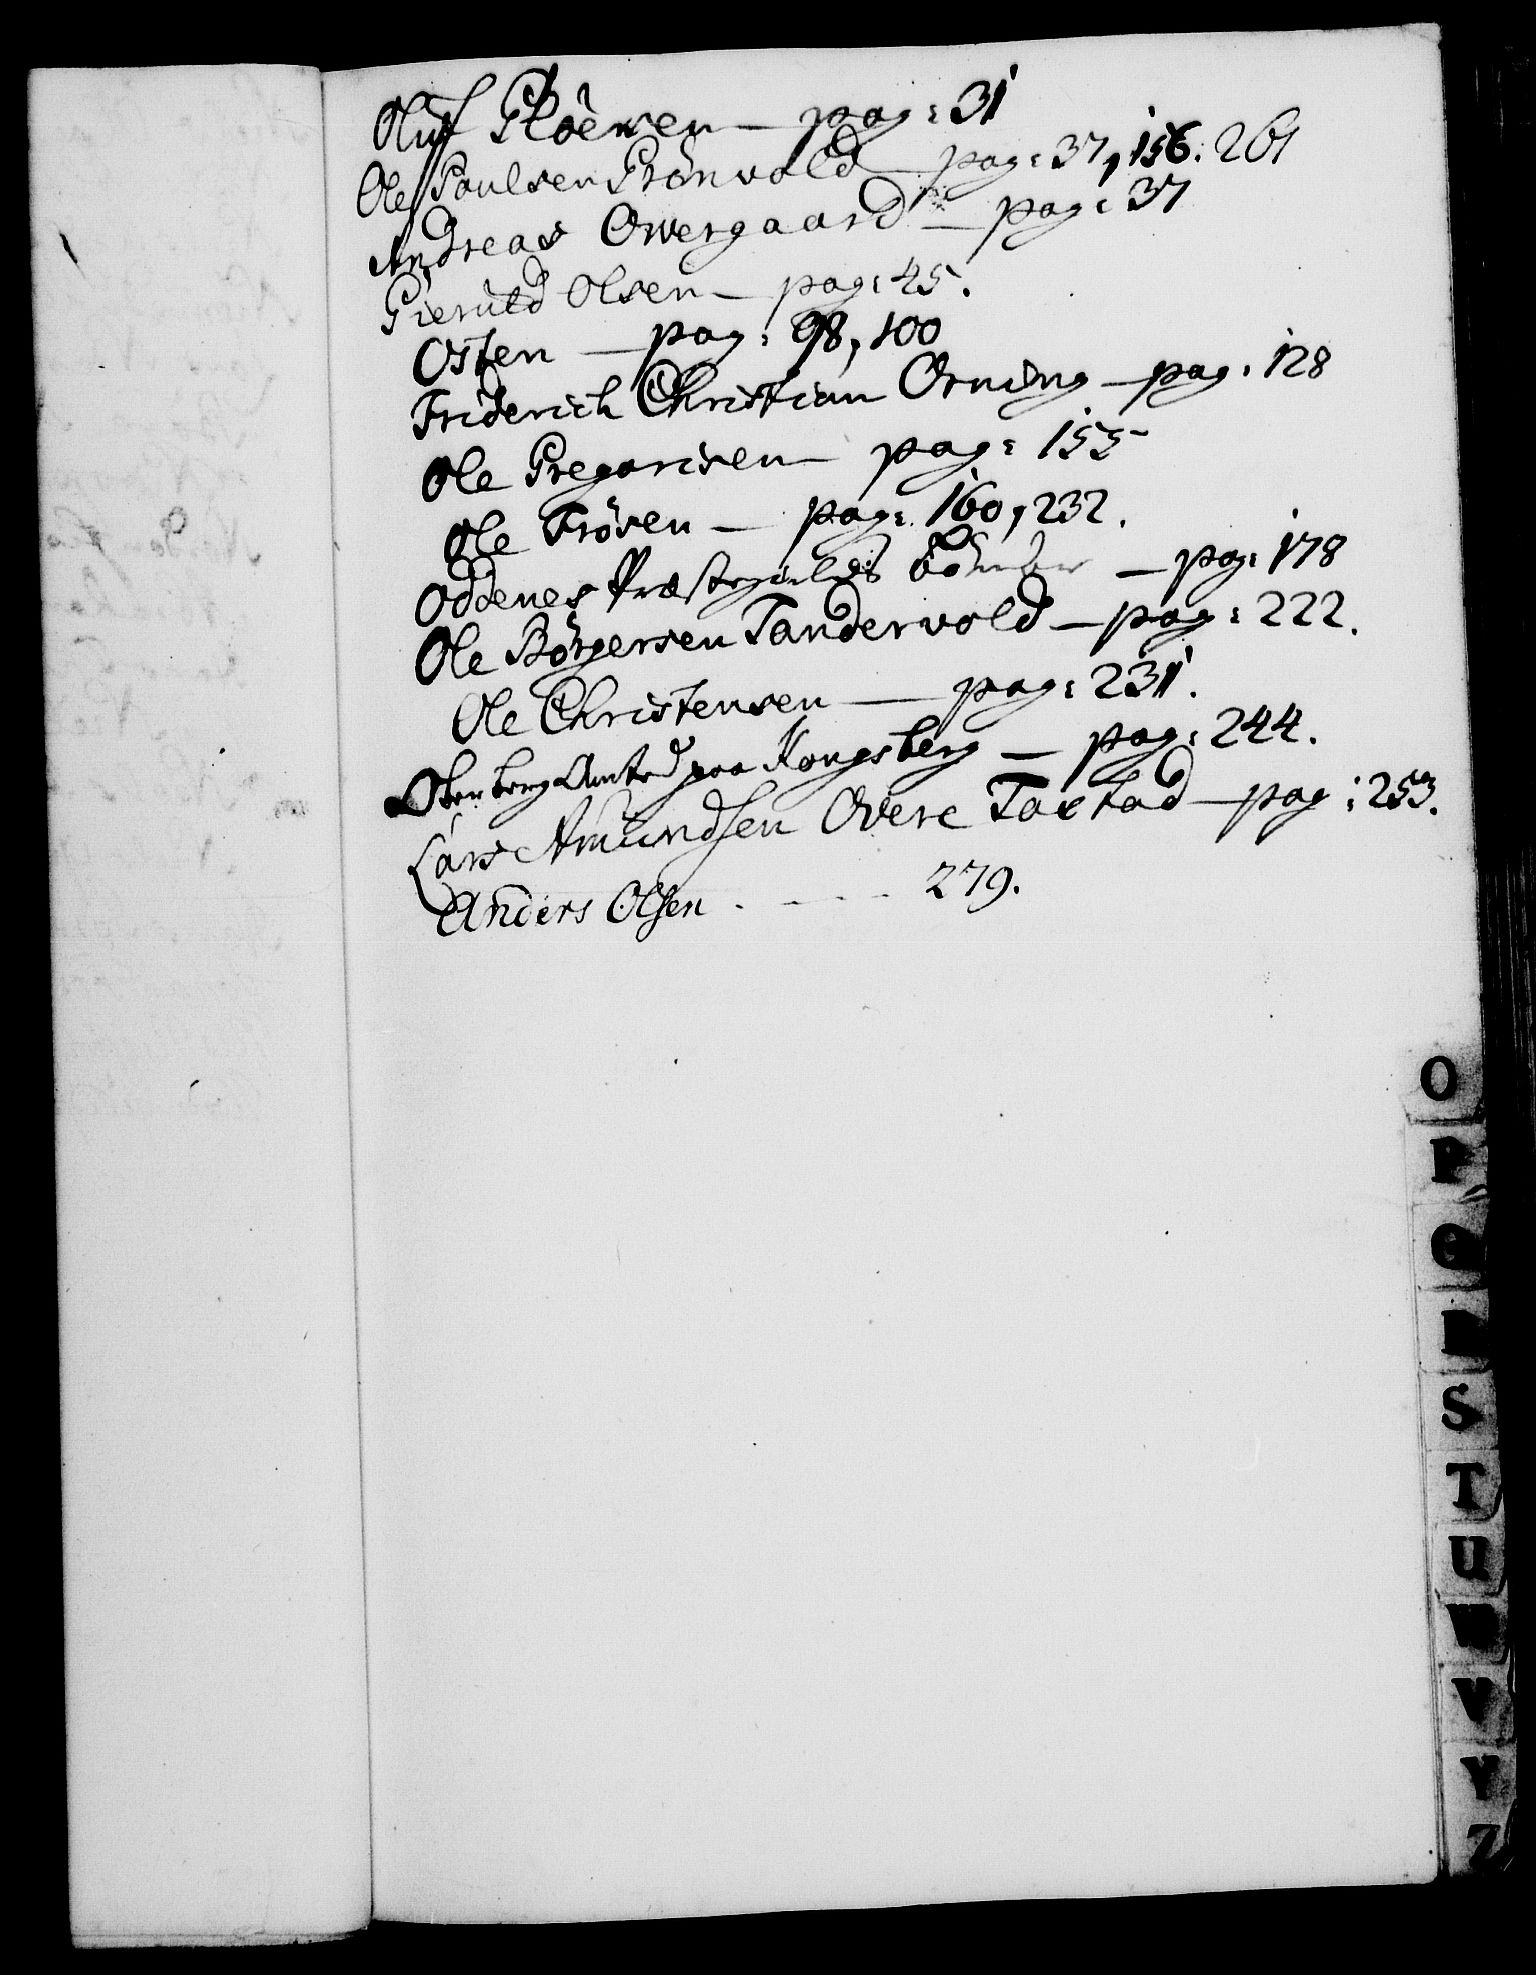 Oluf Gløersen — pag: 31
Ole Paulsen Grönvold — pag: 37, 156. 261
Andreas Overgaard — pag: 37
Gieruld Olsen — pag: 45.
Osten — pag: 98, 100
Friderich Christian Orning — pag. 128
Ole Gregorisen — pag: 155
Ole Frösen — pag: 160, 232.
Oddenes Præstegields — pag: 178
Ole Börgersen Tandervold — pag: 222.
Ole Christensen — pag: 231.
Amted paa Kongsberg — pag: 244.
Lars Amundsen Overe Taxtad — pag: 253.
Anders Olsen . - - - - 279.
O
P
Q
R
S
T
U
W
V
Y
Z